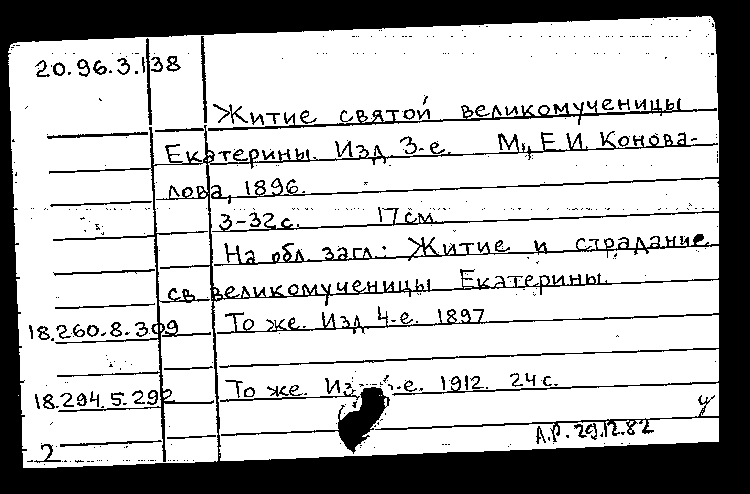 20.96.3.138
Житие святой великомученицы
Екатерины. Изд. 3-е. М., Е.И. Конова-
лова, 1896.
3-32 с. 17 см
На обл. загл.: Житие и страдание
св. великомученицы Екатерины.
18.260.8.309 То же. Изд. 4-е. 1897
18.294.5.292 То же. Из -е. 1912. 24 с.
А.Р. 29.12.82